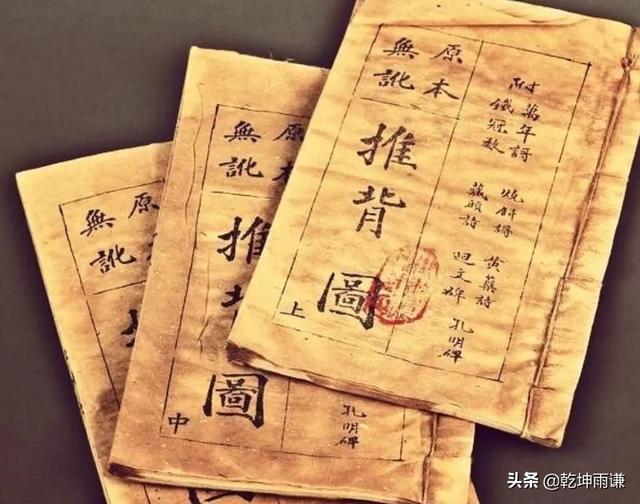 附
萬年謌
鐵冠数
燒餅謌
藏頭詩
黃蘗詩
迴文碑
孔明碑
原本
無訛
推背圖
上
原本
無訛
推背圖
中
孔明碑
原
無訛
头条 @乾坤雨谦